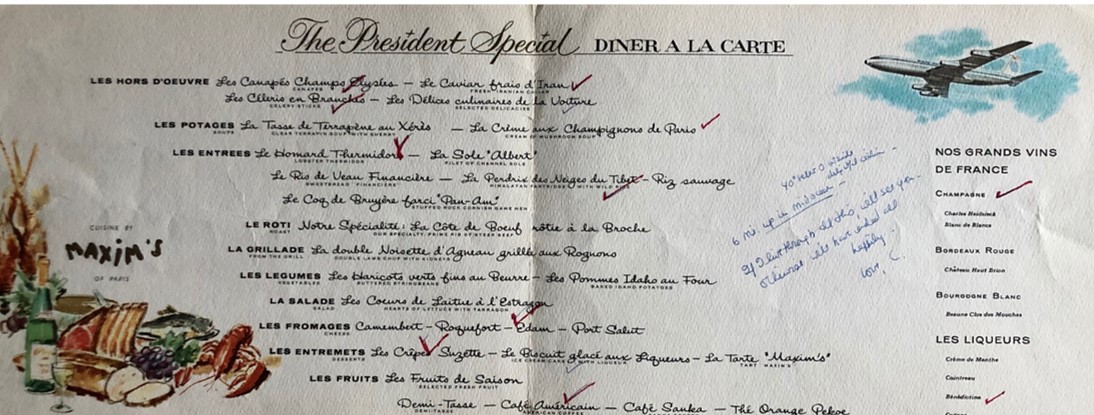 The President Special DINER A LA CARTE
LES HORS D'OEUVRE Les Canapés Champs Elysées — Le Caviar frais d'Iran
CANAPES FRESH IRANIAN CAVIAR
Les Céleris en Branches — Les Délices culinaires de la Voiture
CELERY STICKS SELECTED DELICACIES
LES POTAGES La Tasse de Terrapène au Xérès — La Crème aux Champignons de Paris
SOUPS CLEAR TERRAPIN SOUP WITH SHERRY CREAM OF MUSHROOM SOUP
LES ENTREES Le Homard Thermidor — La Sole "Albert"
LOBSTER THERMIDOR FILET OF CHANNEL SOLE
Le Ris de Veau Financière — La Perdrix des Neiges du Tibet — Riz sauvage
SWEETBREAD "FINANCIERE" HIMALAYAN PARTRIDGE WITH WILD RICE
Le Coq de Bruyère farci "Pan-Am"
STUFFED ROCK CORNISH GAME HEN
LE ROTI Notre Spécialité: La Côte de Boeuf rôtie à la Broche
ROAST OUR SPECIALTY: PRIME RIB OF STEER BEEF
LA GRILLADE La double Noisette d'Agneau grillée aux Rognons
FROM THE GRILL DOUBLE LAMB CHOP WITH KIDNEYS
LES LEGUMES Les Haricots verts fins au Beurre — Les Pommes Idaho au Four
VEGETABLES BUTTERED STRINGBEANS BAKED IDAHO POTATOES
LA SALADE Les Coeurs de Laitue à l'Estragon
SALAD HEARTS OF LETTUCE WITH TARRAGON
LES FROMAGES Camembert — Roquefort — Edam — Port Salut
CHEESE
LES ENTREMETS Les Crêpes Suzette — Le Biscuit glacé aux Liqueurs — La Tarte "Maxim's"
DESSERTS ICE CREAM CAKE WITH LIQUEUR TART MAXIM'S
LES FRUITS Les Fruits de Saison
SELECTED FRESH FRUIT
Demi-Tasse — Café Américain — Café Sanka — Thé Orange Pekoe
DEMITASSE AMERICAN COFFEE
CUISINE BY
MAXIM'S
OF PARIS
6 mi. up in midocean
If I live through all this will see you
otherwise will have died
happily
Love, C.
NOS GRANDS VINS
DE FRANCE
CHAMPAGNE
Charles Heidsieck
Blanc de Blancs
BORDEAUX ROUGE
Château Haut Brion
BOURGOGNE BLANC
Beaune Clos des Mouches
LES LIQUEURS
Crème de Menthe
Cointreau
Bénédictine